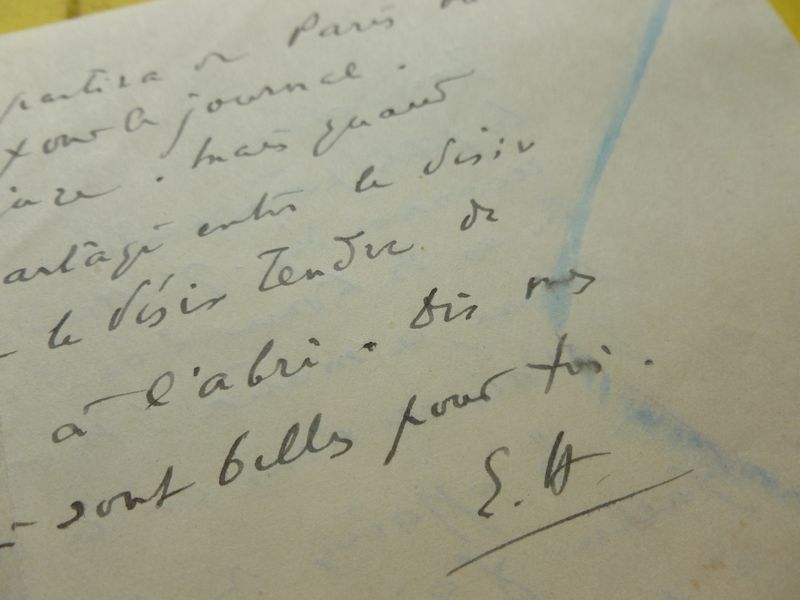 partira de Paris
pour le journal.
. Mais quand
artagé entre le désir
le désir tendre de
à l'abri. Dis
sont belles pour toi.
E. H.